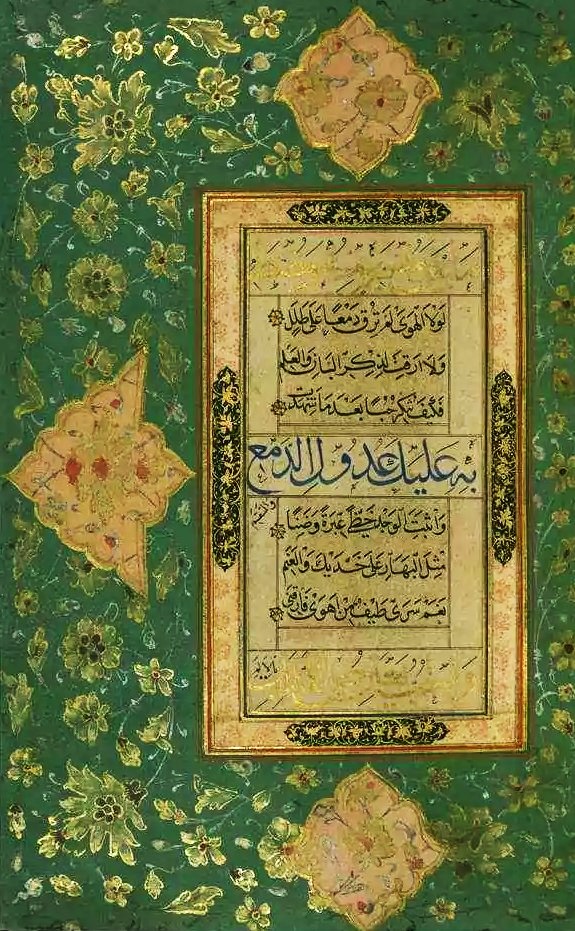 لَوْلَا الْهَوَى لَمْ تُرِقْ دَمْعًا عَلَى طَلَلٍ
وَلَا أَرِقْتَ لِذِكْرِ الْبَانِ وَالْعَلَمِ
فَكَيْفَ تُنْكِرُ حُبًّا بَعْدَ مَا شَهِدَتْ
بِهِ عَلَيْكَ عُدُولُ الدَّمْعِ
وَالسَّقَمِ
وَأَثْبَتَ الْوَجْدُ خَطَّيْ عَبْرَةٍ وَضَنًا
مِثْلَ الْبَهَارِ عَلَى خَدَّيْكَ وَالْعَنَمِ
نَعَمْ سَرَى طَيْفُ مَنْ أَهْوَى فَأَرَّقَنِي
وَالْحُبُّ يَعْتَرِضُ اللَّذَّاتِ بِالْأَلَمِ